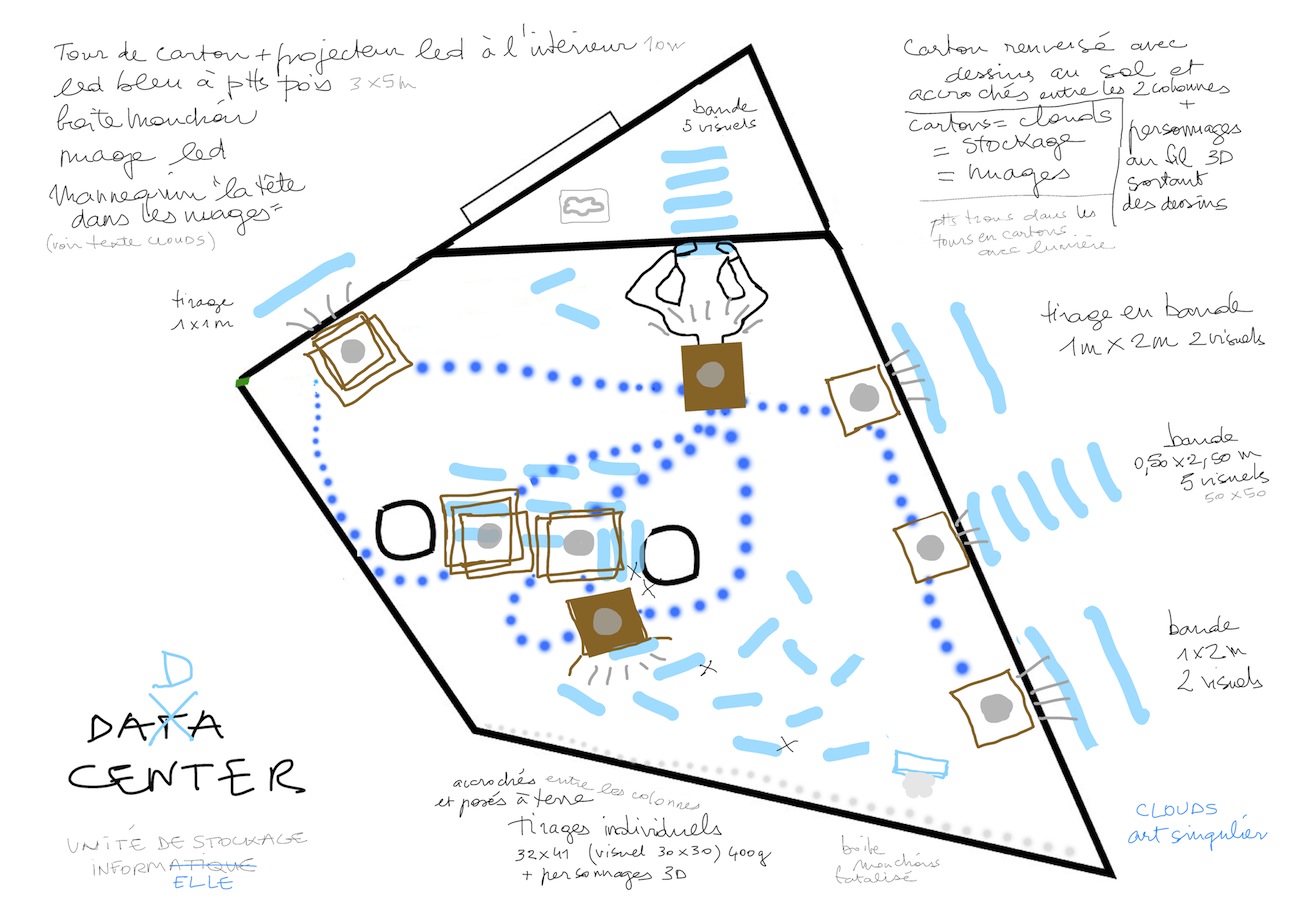 Tour de carton + projecteur led à l'intérieur 10w
led bleu à ptts pois 3 x 5m
boîte mouchoir
nuage led
Mannequin "la tête
dans les nuages"
(voir texte CLOUDS)
bande
5 visuels
Carton renversé avec
dessins au sol et
accrochés entre les 2 colonnes
+
personnages
au fil 3D
sortant
des dessins
cartons = clouds
= stockage
= nuages
ptts trous dans les
tours en cartons
avec lumière
tirage
1x1m
tirage en bande
1m x 2m 2 visuels
bande
0,50 x 2,50 m
5 visuels
50 x 50
bande
1x2m
2 visuels
D
DATA
CENTER
UNITÉ DE STOCKAGE
INFORMATIQUE
ELLE
accrochés entre les colonnes
et posés à terre
tirages individuels
32x41 (visuel 30x30) 400g
+ personnages 3D
boite
mouchoirs
fatalisé
CLOUDS
art singulier